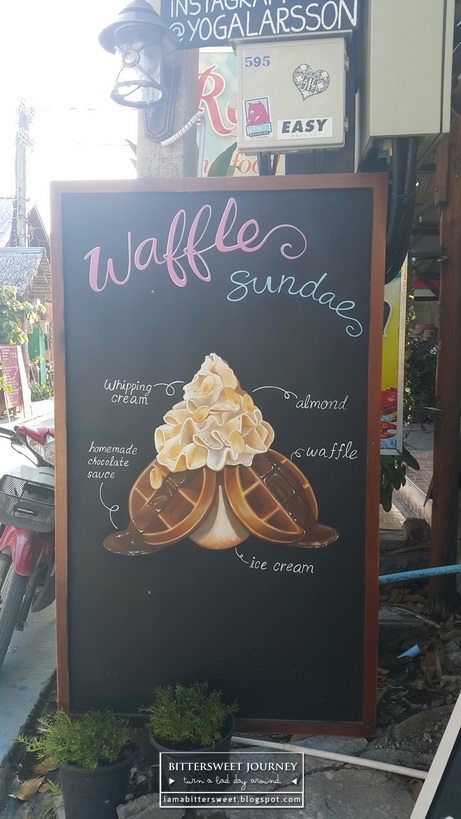 INSTAGRAM
@YOGALARSSON
595
EASY
Waffle
Sundae
Whipping
cream
almond
homemade
chocolate
sauce
waffle
ice cream
BITTERSWEET JOURNEY
turn a bad day around
iamabittersweet.blogspot.com